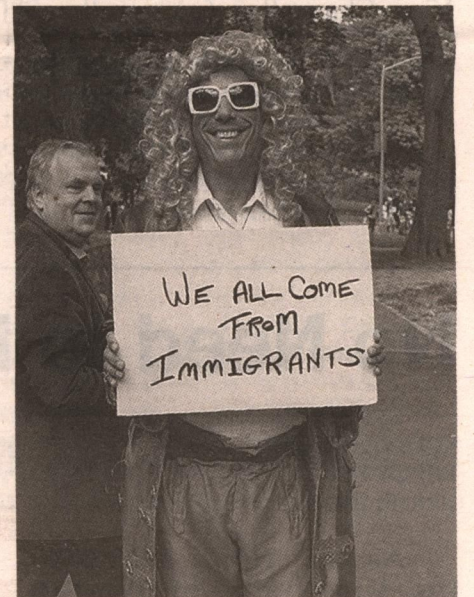 WE ALL COME
FROM
IMMIGRANTS